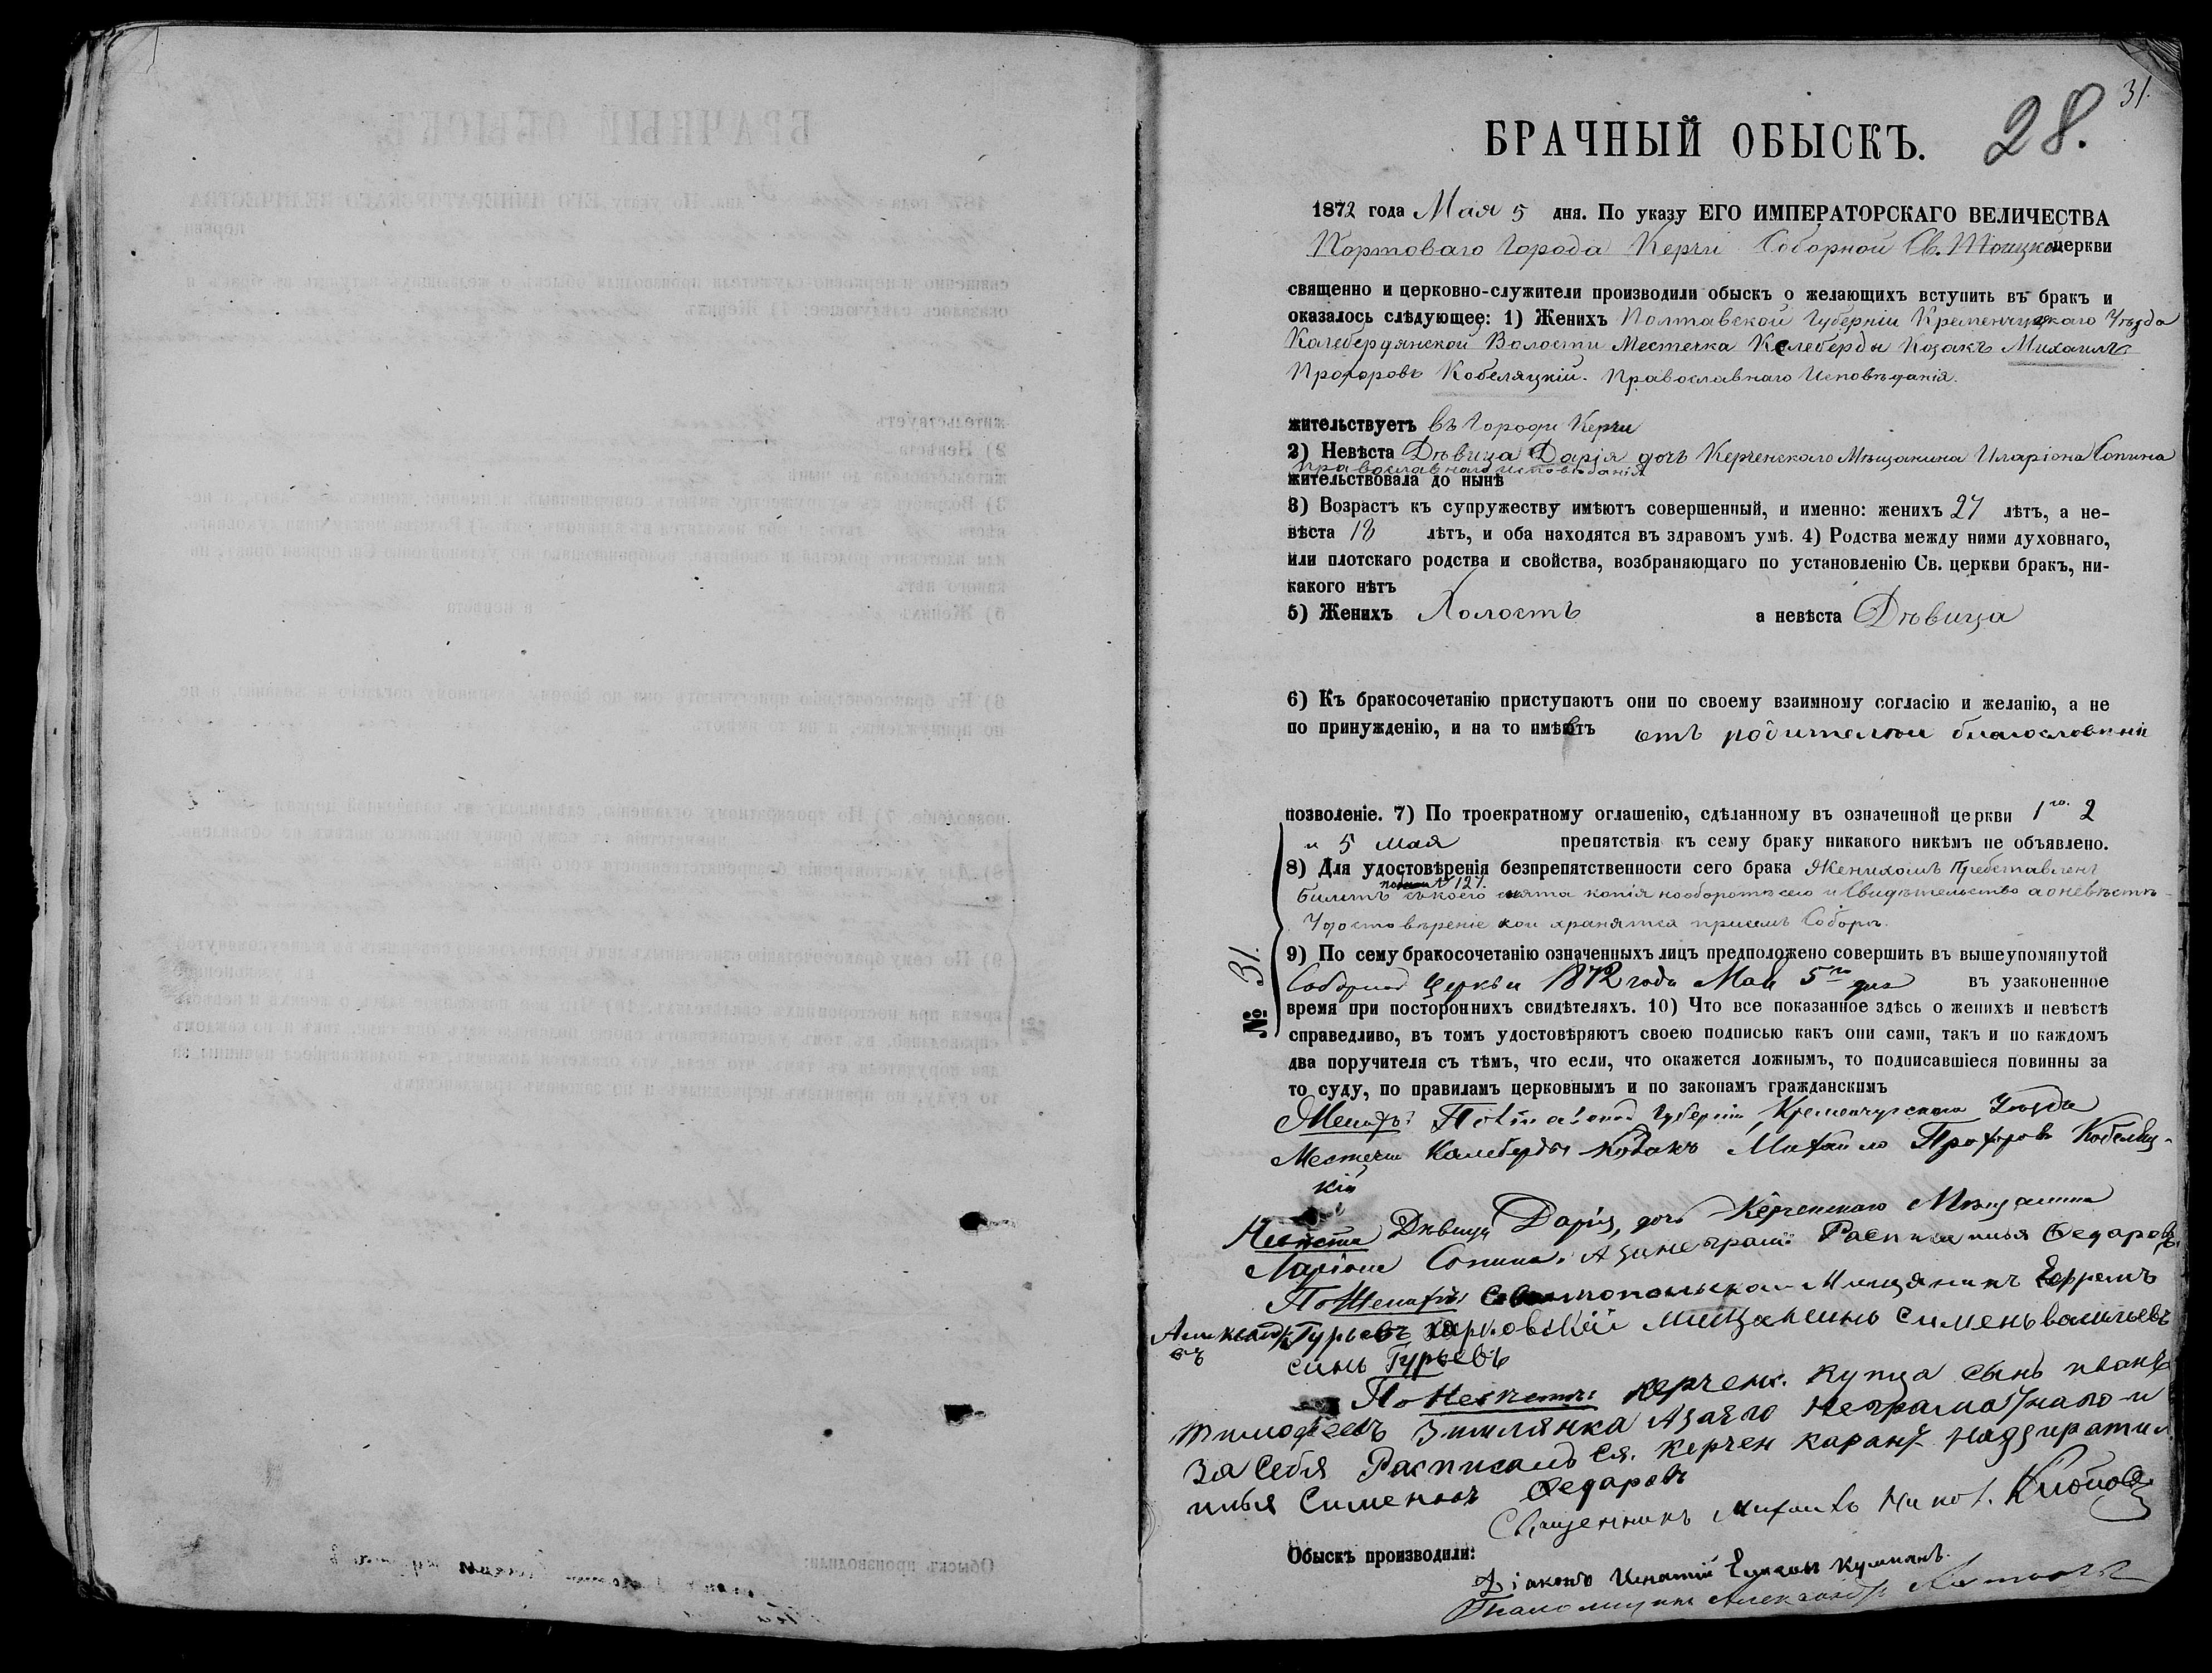 31.
28.
БРАЧНЫЙ ОБЫСКЪ.
1872 года Мая 5 дня. По указу ЕГО ИМПЕРАТОРСКАГО ВЕЛИЧЕСТВА
Портоваго Города Керчи Соборной Св. Троицкой церкви
священно и церковно-служители производили обыскъ о желающихъ вступить въ бракъ и
оказалось слѣдующее: 1) Женихъ Полтавской Губерніи Кременчугскаго Уѣзда
Калебердянской Волости Местечка Келеберды Козакъ Михаилъ
Прохоровъ Кобеляцкій. Православнаго Исповѣданія.
жительствуетъ въ Городѣ Керчи
2) Невѣста Дѣвица Дарія дочь Керченскаго Мѣщанина Иларіона Сопина
Православнаго исповѣданія
жительствовала до нынѣ
3) Возрастъ къ супружеству имѣютъ совершенный, и именно: женихъ 27 лѣтъ, а не-
вѣста 18 лѣтъ, и оба находятся въ здравомъ умѣ. 4) Родства между ними духовнаго,
или плотскаго родства и свойства, возбраняющаго по установленію Св. церкви бракъ, ни-
какого нѣтъ
5) Женихъ Холостъ а невѣста Дѣвица
6) Къ бракосочетанію приступаютъ они по своему взаимному согласію и желанію, а не
по принужденію, и на то имѣютъ отъ родителей
позволеніе. 7) По троекратному оглашенію, сдѣланному въ означенной церкви 1го. 2
и 5 мая препятствія къ сему браку никакого никѣмъ не объявлено.
8) Для удостовѣренія безпрепятственности сего брака Женихомъ Представленъ
№ 121.
Билетъ съ коего снята копія на оборотѣ сего и Свидѣтельство а о невѣстѣ
Удостовѣреніе кои хранятся при семъ Соборѣ.
№ 31.
9) По сему бракосочетанію означенныхъ лицъ предположено совершить въ вышеупомянутой
Соборной Церкви 1872 года Мая 5го дня въ узаконенное
время при постороннихъ свидѣтеляхъ. 10) Что все показанное здѣсь о женихѣ и невѣстѣ
справедливо, въ томъ удостовѣряютъ своею подписью какъ они сами, такъ и по каждомъ
два поручителя съ тѣмъ, что если, что окажется ложнымъ, то подписавшіеся повинны за
то суду, по правиламъ церковнымъ и по законамъ гражданскимъ
Женихъ: Полтавской Губерніи Кременчугскаго Уѣзда
Местечка Калеберды Козакъ Михайло Прохоровъ Кобеляц-
кій
Невѣста Дѣвица Дарія, дочь Керченскаго Мѣщанина
Ларіона Сопина. А Росписалъся Федаровъ.
По Женихѣ: Мищанинъ Ефремъ
Гурьевъ харковскій мищанинъ Сименъ васильевъ
синъ Гурьевъ
По Невѣстѣ: керченс. купца сынъ иванъ
тимофеевъ Зимлянка Азаяго Неграмотнаго и
За Себя Расписалъся. Керчен каран
илья Сименовъ Федаровъ
Священникъ Михаилъ
Обыскъ производили:
Діаконъ Игнатій
Александръ